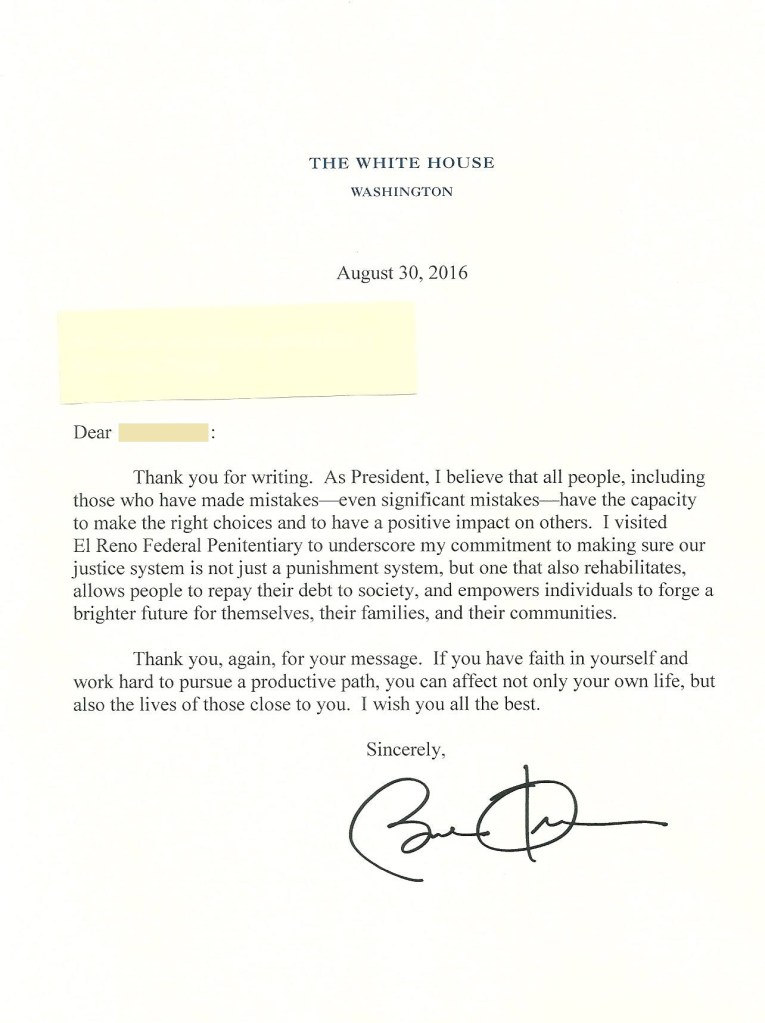 THE WHITE HOUSE
WASHINGTON
August 30, 2016
Dear :
Thank you for writing. As President, I believe that all people, including
those who have made mistakes—even significant mistakes—have the capacity
to make the right choices and to have a positive impact on others. I visited
El Reno Federal Penitentiary to underscore my commitment to making sure our
justice system is not just a punishment system, but one that also rehabilitates,
allows people to repay their debt to society, and empowers individuals to forge a
brighter future for themselves, their families, and their communities.
Thank you, again, for your message. If you have faith in yourself and
work hard to pursue a productive path, you can affect not only your own life, but
also the lives of those close to you. I wish you all the best.
Sincerely,